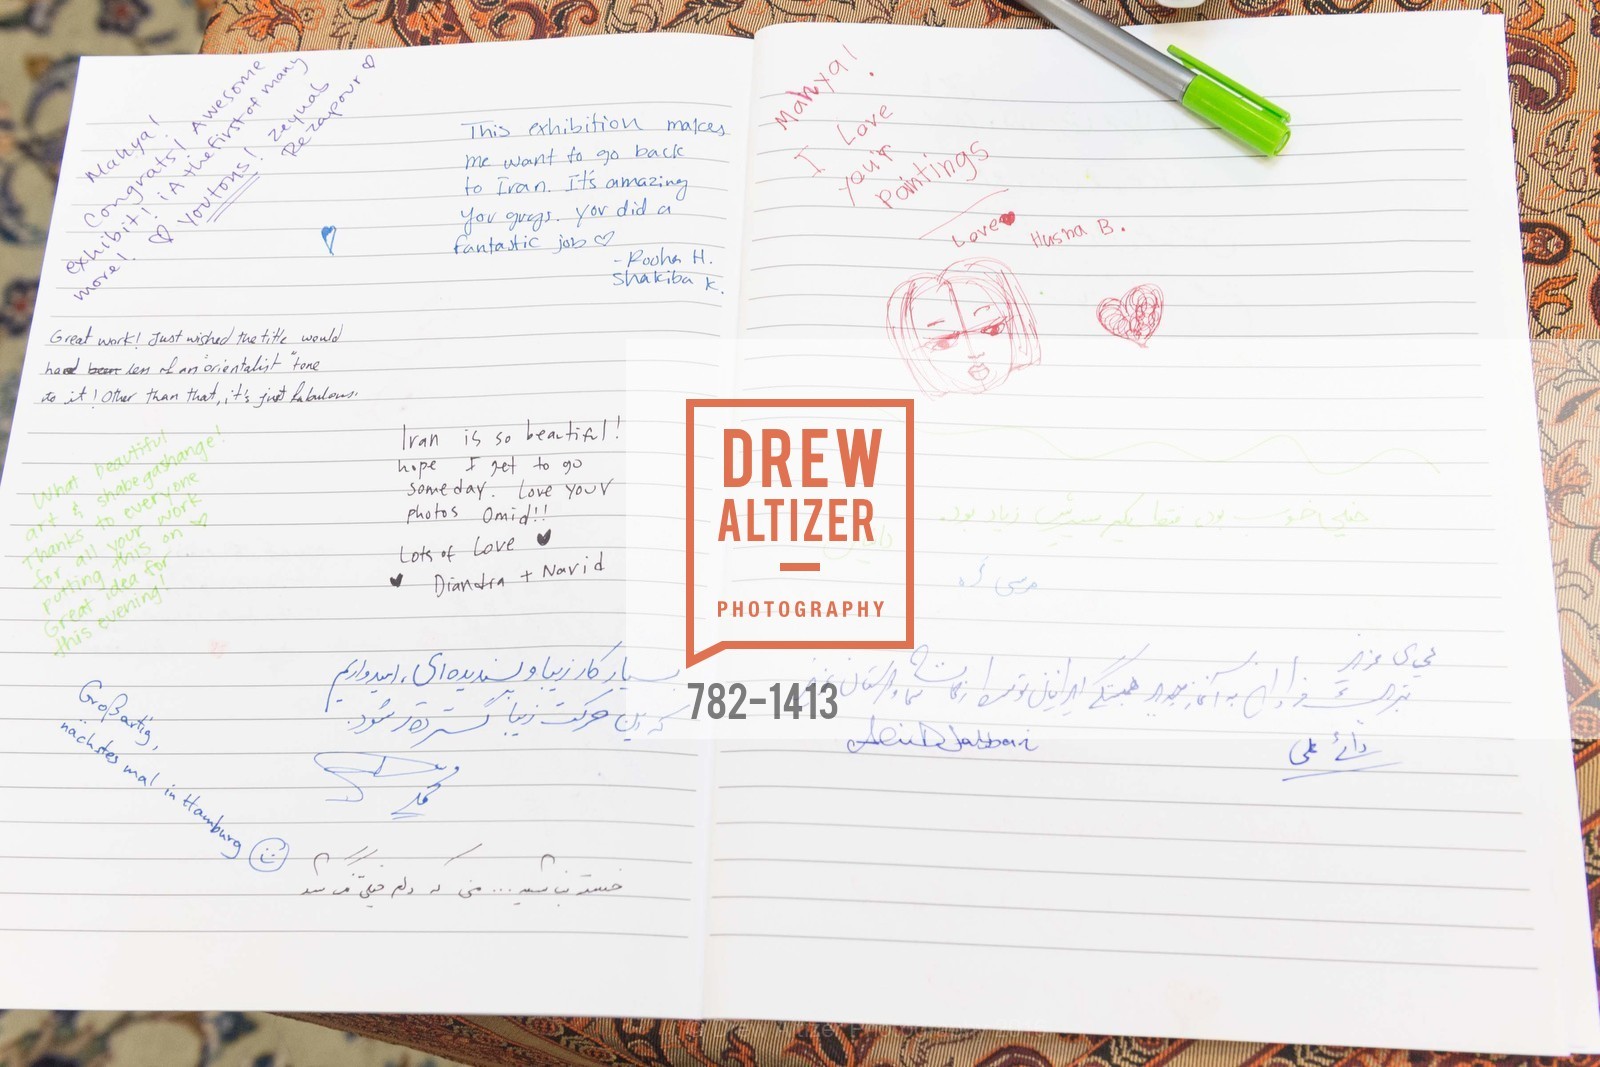 Mahya!
Congrats! Awesome
exhibit! iA the first of many
more! ♡ Youtons! Zeynab
Rezapour ♡
This exhibition makes
me want to go back
to Iran. It's amazing
you guys. you did a
fantastic job ♡
- Rooha H.
Shakiba K.
Great work! Just wished the title would
had less of an "orientalist" tone
to it! Other than that, it's just fabulous.
What beautiful
art & shabegashange!
Thanks to everyone
for all your work
putting this on ♡
Great idea for
this evening!
Iran is so beautiful!
hope I get to go
someday. Love your
photos Omid!!
Lots of Love ♥
♥ Diandra + Navid
بسیار کار زیبا و پسندیده‌ای، امیدواریم
که این حرکت زیبا گسترده‌تر شود.
Großartig,
nächstes mal in Hamburg
خسته نباشید... من که دلم خیلی
Mahya!
I Love
your
paintings
Love♥ Husna B.
خیلی خوب بود زیاد بود.
مرسی
عزیز
دایی علی
DREW
ALTIZER
PHOTOGRAPHY
782-1413